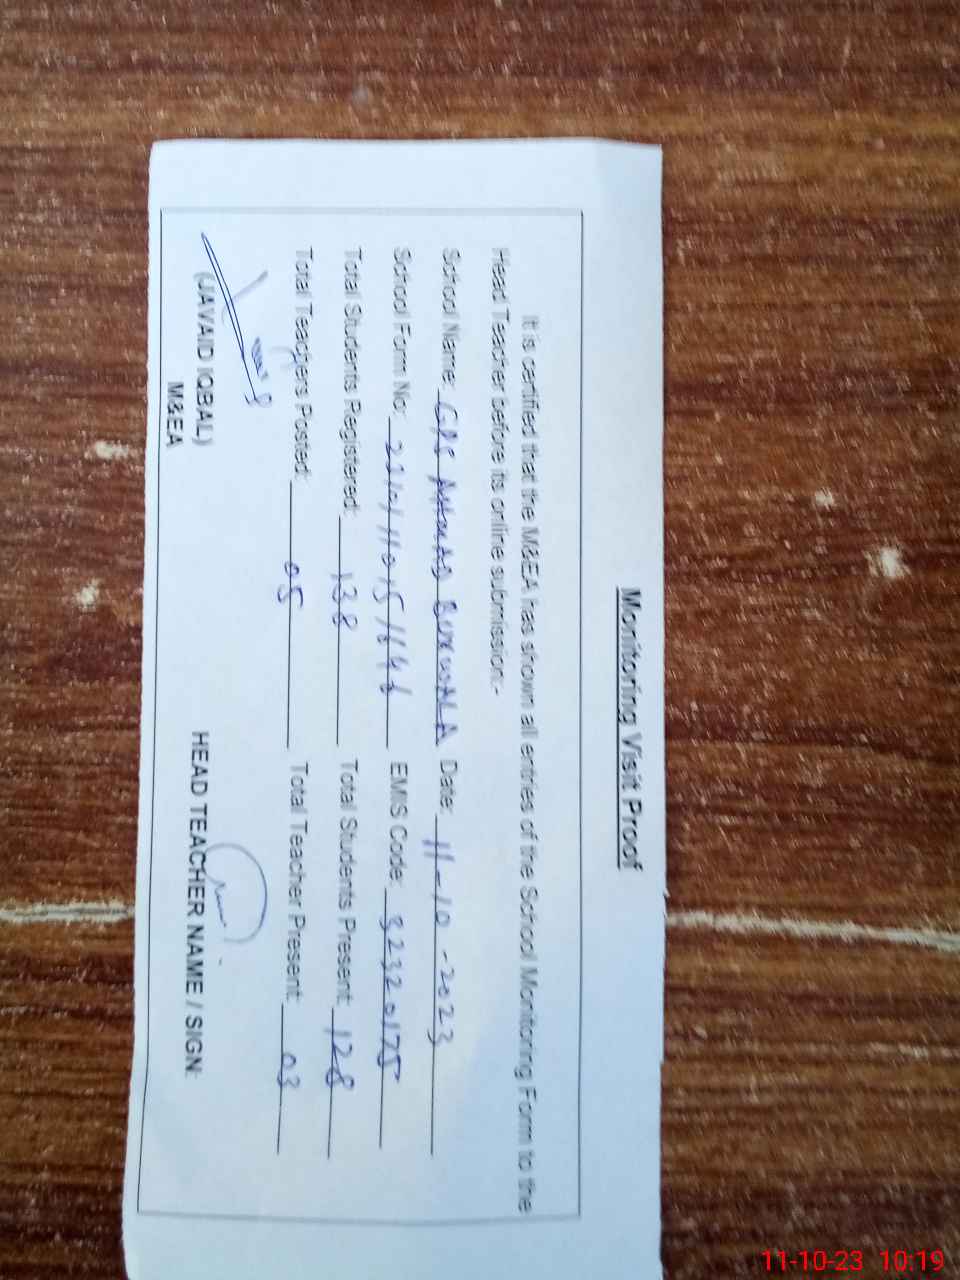 Monitoring Visit Proof
It is certified that the M&EA has shown all entries of the School Monitoring Form to the
Head Teacher before its online submission:-
School Name: GPS Ahmad Burewala Date: 11-10-2023
School Form No: EMIS Code: 32320175
Total Students Registered: 138 Total Students Present: 128
Total Teachers Posted: 05 Total Teacher Present: 03
(JAVAID IQBAL) HEAD TEACHER NAME / SIGN:
M&EA
11-10-23 10:19